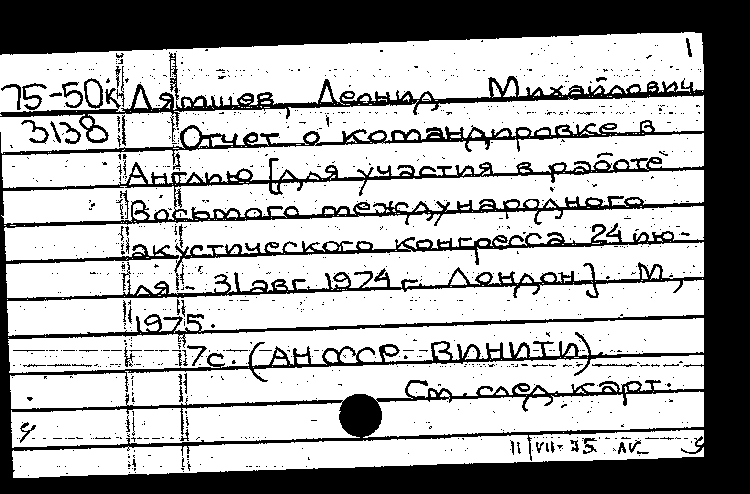 1
75-50к Лямшев, Леонид Михайлович
3138 Отчет о командировке в
Англию [для участия в работе
Восьмого международного
акустического конгресса. 24 ию-
ля - 31 авг. 1974 г. Лондон]. М.,
1975.
7с. (АН СССР. ВИНИТИ).
См. след. карт.
11/VII-75